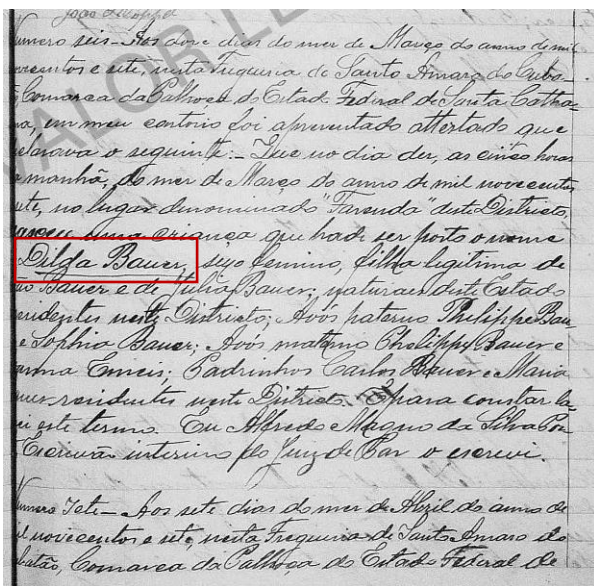 João Schoppa
Numero seis - Aos doze dias do mez de Março do anno de mil
novecentos e sete, nesta Freguezia de Santo Amaro do Cuba-
Comarca da Palhoça do Estado Federal de Santa Catha-
em meu cartorio foi apresentado attestado que
declarava o seguinte: - Que no dia dez, as cinco horas
manhã, do mez de Março do anno de mil novecentos
sete, no lugar denominado "Fazenda" deste Districto,
nasceu uma criança que hade ser posto o nome
Dilda Bauer, sexo feminino, filha legitima de
Bauer e de Julia Bauer; naturaes deste Estado
residentes neste Districto; Avós paterno Philippe Bau-
e Sophia Bauer; Avós materno Phelippe Bauer e
Padrinhos Carlos Bauer e Maria
residentes neste Districto. E para constar la-
este termo. Eu Alfredo Magno da Silva
Escrivão interino do Juiz de Paz o escrevi.
Numero Sete - Aos sete dias do mez de Abril do anno de
mil novecentos e sete, nesta Freguezia de Santo Amaro do
Cubatão, Comarca da Palhoça do Estado Federal de
VALOR LE